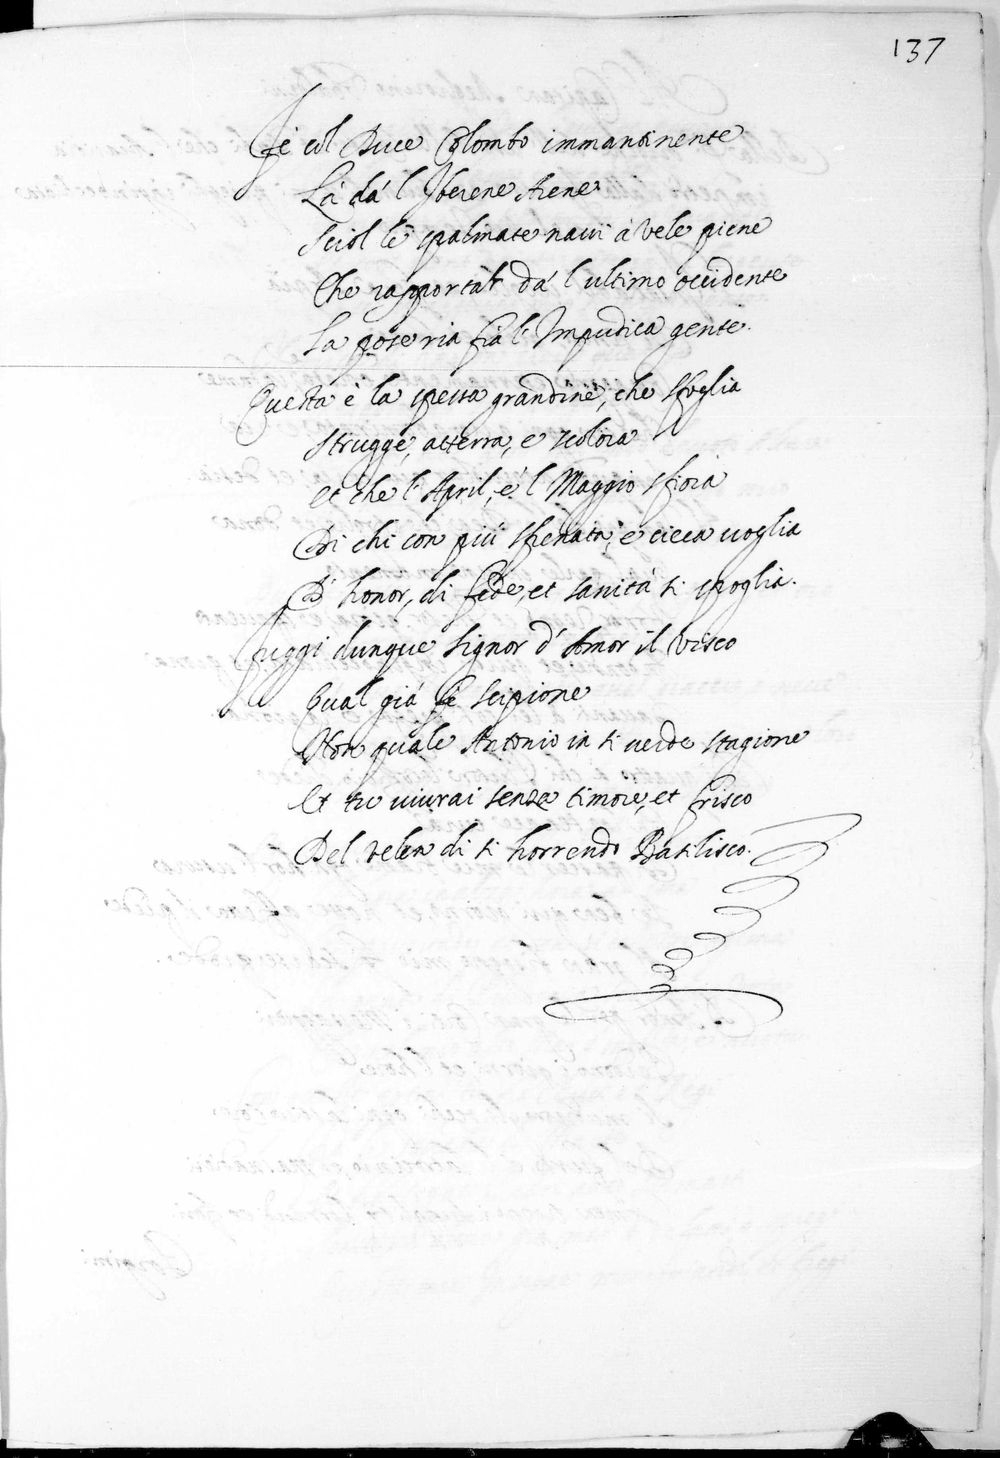 137
Fé col Duce Colombo immantinente
Lá dá l'Iberene Arene
Sciol le spalmate navi á vele piene
Che rapportar dá l ultimo occidente
La poteria frá l'Impudica gente.
Questa é la spessa grandine, che sfoglia
strugge, atterra, e scolora
et che l'April, é l Maggio sfiora
Di chi con piú sfrenata, e cieca voglia
D'honor, di fede, et sanitá si spoglia.
Fuggi dunque signor d'Amor il visco
Qual giá fé scipione
Non quale Antonio in si verde stagione
Et tu vivrai senza timore, et frisco
Del velen di si horrendo Basilisco.